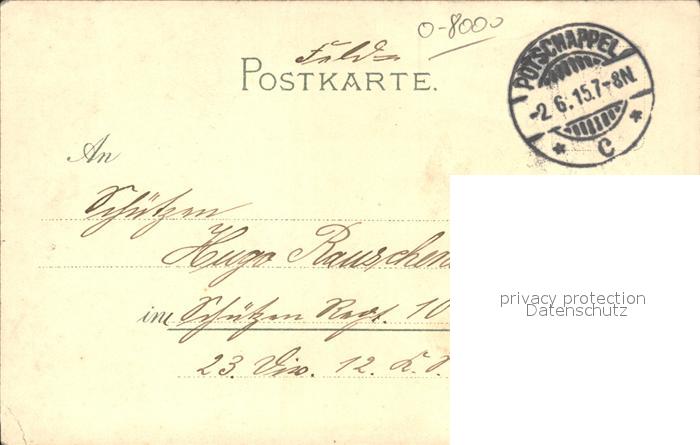 0-8000
Feld-
POSTKARTE.
POTSCHAPPEL
-2.6.15.7-8N.
* C *
An
Schützen
Hugo Rauschen
im Schützen Regt. 10
23. Div. 12. K.
privacy protection
Datenschutz